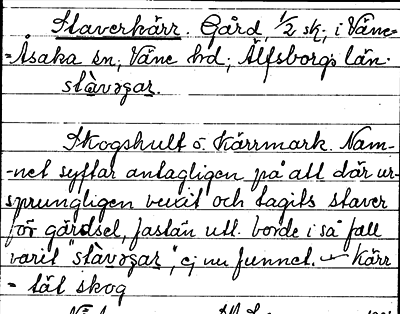 Staverkärr. Gård, 1/2 sk; i Väne-
-Åsaka sn, Väne hd; Älfsborgs län.
stàvəʒar.
Skogshult o. Kärrmark. Nam-
-net syftar antagligen på att där ur-
sprungligen växit och tagits staver
för gärdsel, fastän utt. borde i så fall
varit "stàvəʒar", ej nu funnet. Kärr
= tät skog